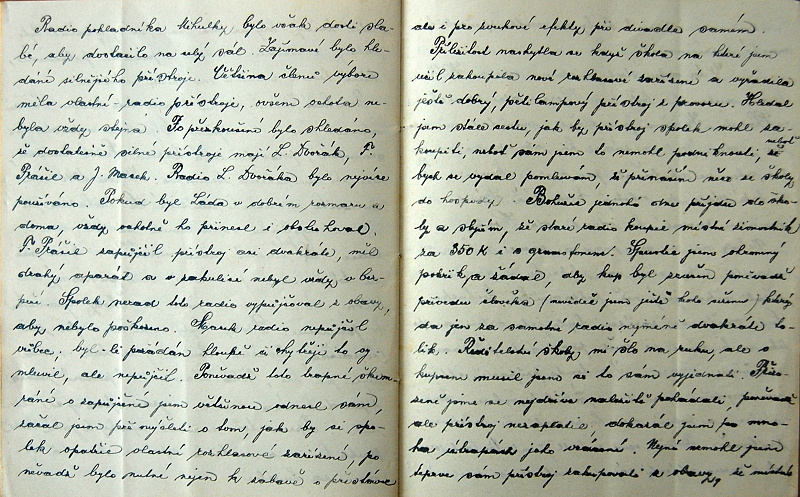 Radio pokladníka Mihulky bylo však dosti sla-
bé, aby dostačilo na celý sál. Zajímavé bylo hle-
dání silnějšího přístroje. Většina členů výboru
měla vlastní radio přístroje, ovšem ochota ne-
byla vždy stejná. Po přezkoušení bylo shledáno,
že dostatečně silné přístroje mají L. Dvořák, F.
Prášil a J. Masek. Radio L. Dvořáka bylo nejvíce
používáno. Pokud byl Láda v dobrém rozmaru a
doma, vždy ochotně ho přinesl i obsluhoval.
F. Prášil zapůjčil přístroj asi dvakráte, měl
drahý aparát a v zákulisí nebyl vždy v bez-
pečí. Spolek nerad toto radio vypůjčoval z obavy,
aby nebylo poškozeno. Masek radio nepůjčil
vůbec; byl-li požádán hloupě či chytřeji to
omluvil, ale nepůjčil. Poněvadž toto trapné škem-
rání o zapůjčení jsem většinou odnesl sám,
začal jsem přemýšleti o tom, jak by si spo-
lek opatřil vlastní rozhlasové zařízení, po
něvadž bylo nutné nejen k zábavě o přestávce
ale i pro zvukové efekty při divadle samém.
Příležitost naskytla se když škola na které jsem
učil zakoupila nové rozhlasové zařízení a vyřadila
ještě dobrý, pěti lampový přístroj z provozu. Hledal
jsem stále cestu, jak by přístroj spolek mohl za-
koupiti, neboť sám jsem to nemohl podniknouti, neboť
bych se vydal pomluvám, že přináším něco ze školy
do hospody. Bohužel jednoho dne přijdu do ško-
ly a slyším, že staré radio koupil místní
za 350 K i s gramofonem. Spustil jsem ohromný
pokřik, a žádal, aby kup byl zrušen poněvadž
přivedu člověka (nevěděl jsem ještě koho) který
dá jen za samotné radio nejméně dvakráte to-
lik. Ředitelství školy mi šlo na ruku, ale s
kupcem musil jsem si to sám vyjednati.
se nejdříve
ale přístroj nezaplatil, dokázal jsem po mno-
ha útrapách jeho vrácení. Nyní nemohl jsem
teprve sám přístroj zakoupiti z obavy, že místní